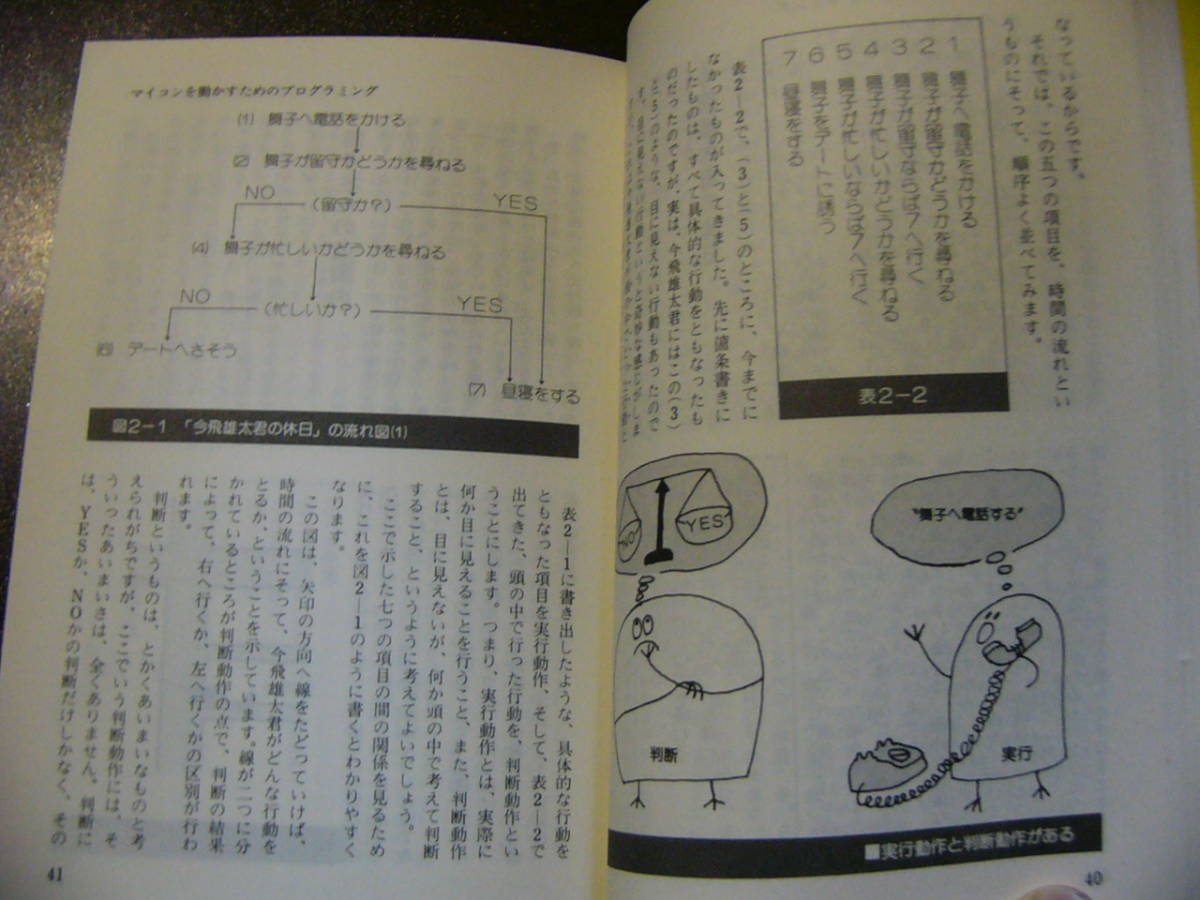 なっているからです。
それでは、この五つの項目を、時間の流れとい
うものにそって、順序よく並べてみます。
1 舞子へ電話をかける
2 舞子が留守かどうかを尋ねる
3 舞子が留守ならば7へ行く
4 舞子が忙しいかどうかを尋ねる
5 舞子が忙しいならば7へ行く
6 舞子をデートに誘う
7 昼寝をする
表2-2
表2—2で、(3)と(5)のところに、今までに
なかったものが入ってきました。先に箇条書きに
したものは、すべて具体的な行動をともなったも
のだったのですが、実は、今飛雄太君にはこの(3)
と(5)のような、目に見えない行動もあったので
"舞子へ電話する"
実行
NO
YES
判断
■実行動作と判断動作がある
40
マイコンを動かすためのプログラミング
(1) 舞子へ電話をかける
(2) 舞子が留守かどうかを尋ねる
NO
(留守か?)
YES
(4) 舞子が忙しいかどうかを尋ねる
NO
(忙しいか?)
YES
(6) デートへさそう
(7) 昼寝をする
図2-1 「今飛雄太君の休日」の流れ図(1)
表2—1に書き出したような、具体的な行動を
ともなった項目を実行動作、そして、表2—2で
出てきた、頭の中で行った行動を、判断動作とい
うことにします。つまり、実行動作とは、実際に
何か目に見えることを行うこと、また、判断動作
とは、目に見えないが、何か頭の中で考えて判断
すること、というように考えてよいでしょう。
ここで示した七つの項目の間の関係を見るため
に、これを図2—1のように書くとわかりやすく
なります。
この図は、矢印の方向へ線をたどっていけば、
時間の流れにそって、今飛雄太君がどんな行動を
とるか、ということを示しています。線が二つに分
かれているところが判断動作の点で、判断の結果
によって、右へ行くか、左へ行くかの区別が行わ
れます。
判断というものは、とかくあいまいなものと考
えられがちですが、ここでいう判断動作には、そ
ういったあいまいさは、全くありません。判断に
は、YESか、NOかの判断だけしかなく、その
41